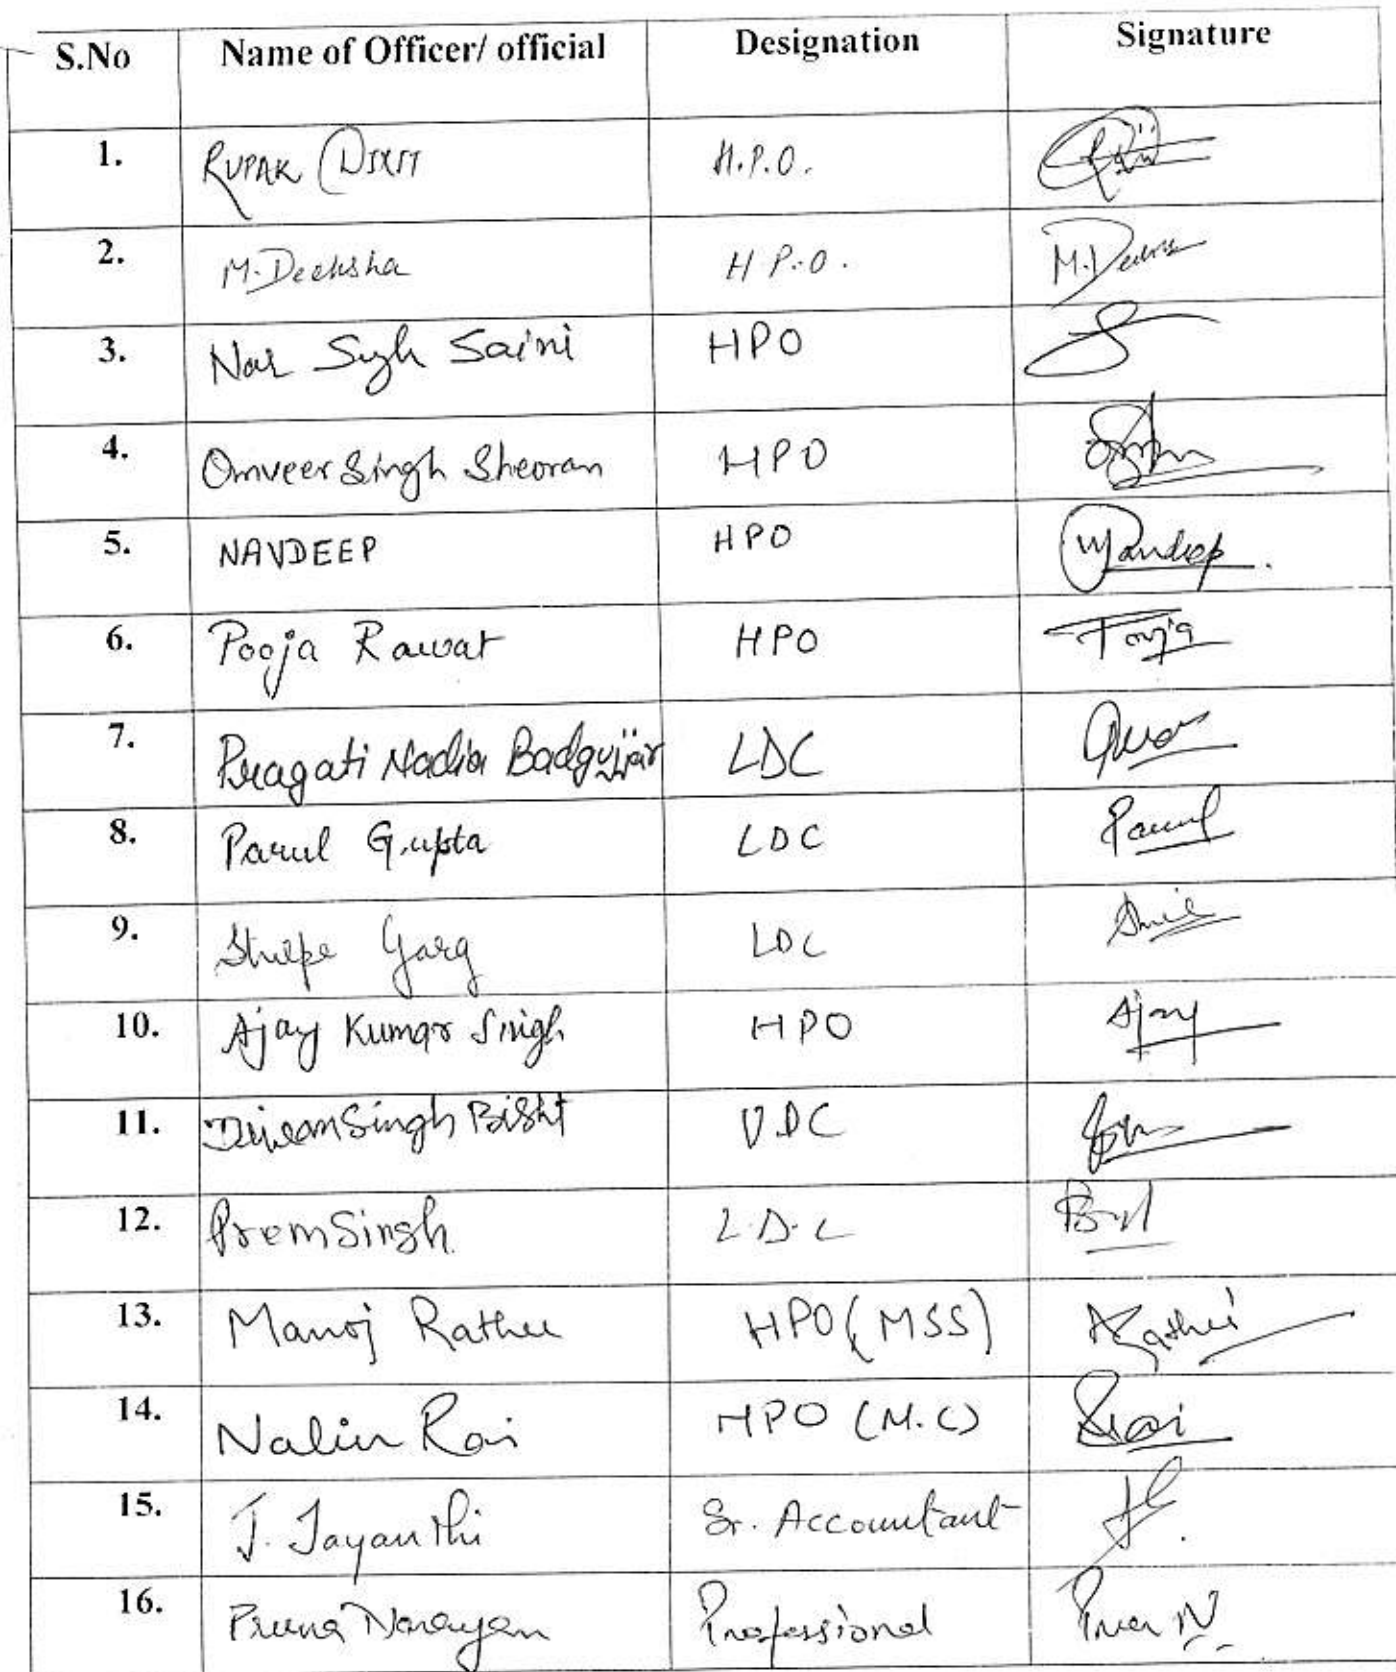 S.No Name of Officer/ official Designation Signature
1. RUPAK DIXIT H.P.O.
2. M. Deeksha H P.O. M.
3. Nar Singh Saini HPO
4. Omveer Singh Sheoran HPO
5. NAVDEEP HPO Navdeep
6. Pooja Rawat HPO Pooja
7. Pragati Nadia Badgujjar LDC
8. Parul Gupta LDC Parul
9. Shilpa Garg LDC
10. Ajay Kumar Singh HPO Ajay
11. Singh Bisht UDC
12. Prem Singh L.D.C
13. Manoj Rathee HPO (MSS) Rathee
14. Nalin Rai HPO (M.C) Rai
15. J. Jayanthi Sr. Accountant
16. Narayan Professional